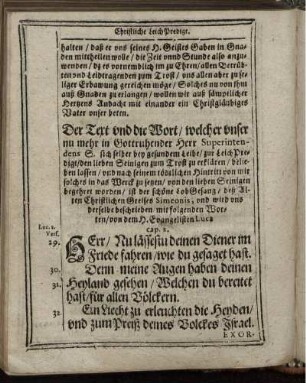 Christliche Leich Predigt.
halten / daß er uns seines H. Geistes Gaben in Gna-
den mittheilen wolle / die Zeit unnd Stunde also anzu-
wenden / dz es vornemblich jm zu Ehren / allen Betrüb-
ten und Leidtragenden zum Trost / uns allen aber zu se-
liger Erbawung gereichen möge / Solches nu von jhm
auß Gnaden zu erlangen / wollen wir auß sämptlicher
Hertzens Andacht mit einander ein Christgläubiges
Vater unser beten.
Der Text und die Wort / welcher unser
nu mehr in Gottruhender Herr Superinten-
dens S. sich selber bey gesundem Leibe / zur Leich Pre-
digt / den lieben Seinigen zum Trost zu erklären / belie-
ben lassen / und nach seinem tödtlichen Hintritt von mir
solches in das Werck zu setzen / von den lieben Seinigen
begehret worden / ist der schöne Lob Gesang / deß Al-
ten Christlichen Greises Simeonis, und wird uns
derselbe beschrieben mit folgenden Wor-
ten / von dem H. Evangelisten Luca
cap. 2.
Luc. 2.
Vers.
29. HErr / Nu lässestu deinen Diener im
Friede fahren / wie du gesaget hast.
30. Denn meine Augen haben deinen
31. Heyland gesehen / Welchen du bereitet
hast / für allen Völckern.
32. Ein Liecht zu erleuchten die Heyden /
und zum Preiß deines Volckes Israel.
EXOR-